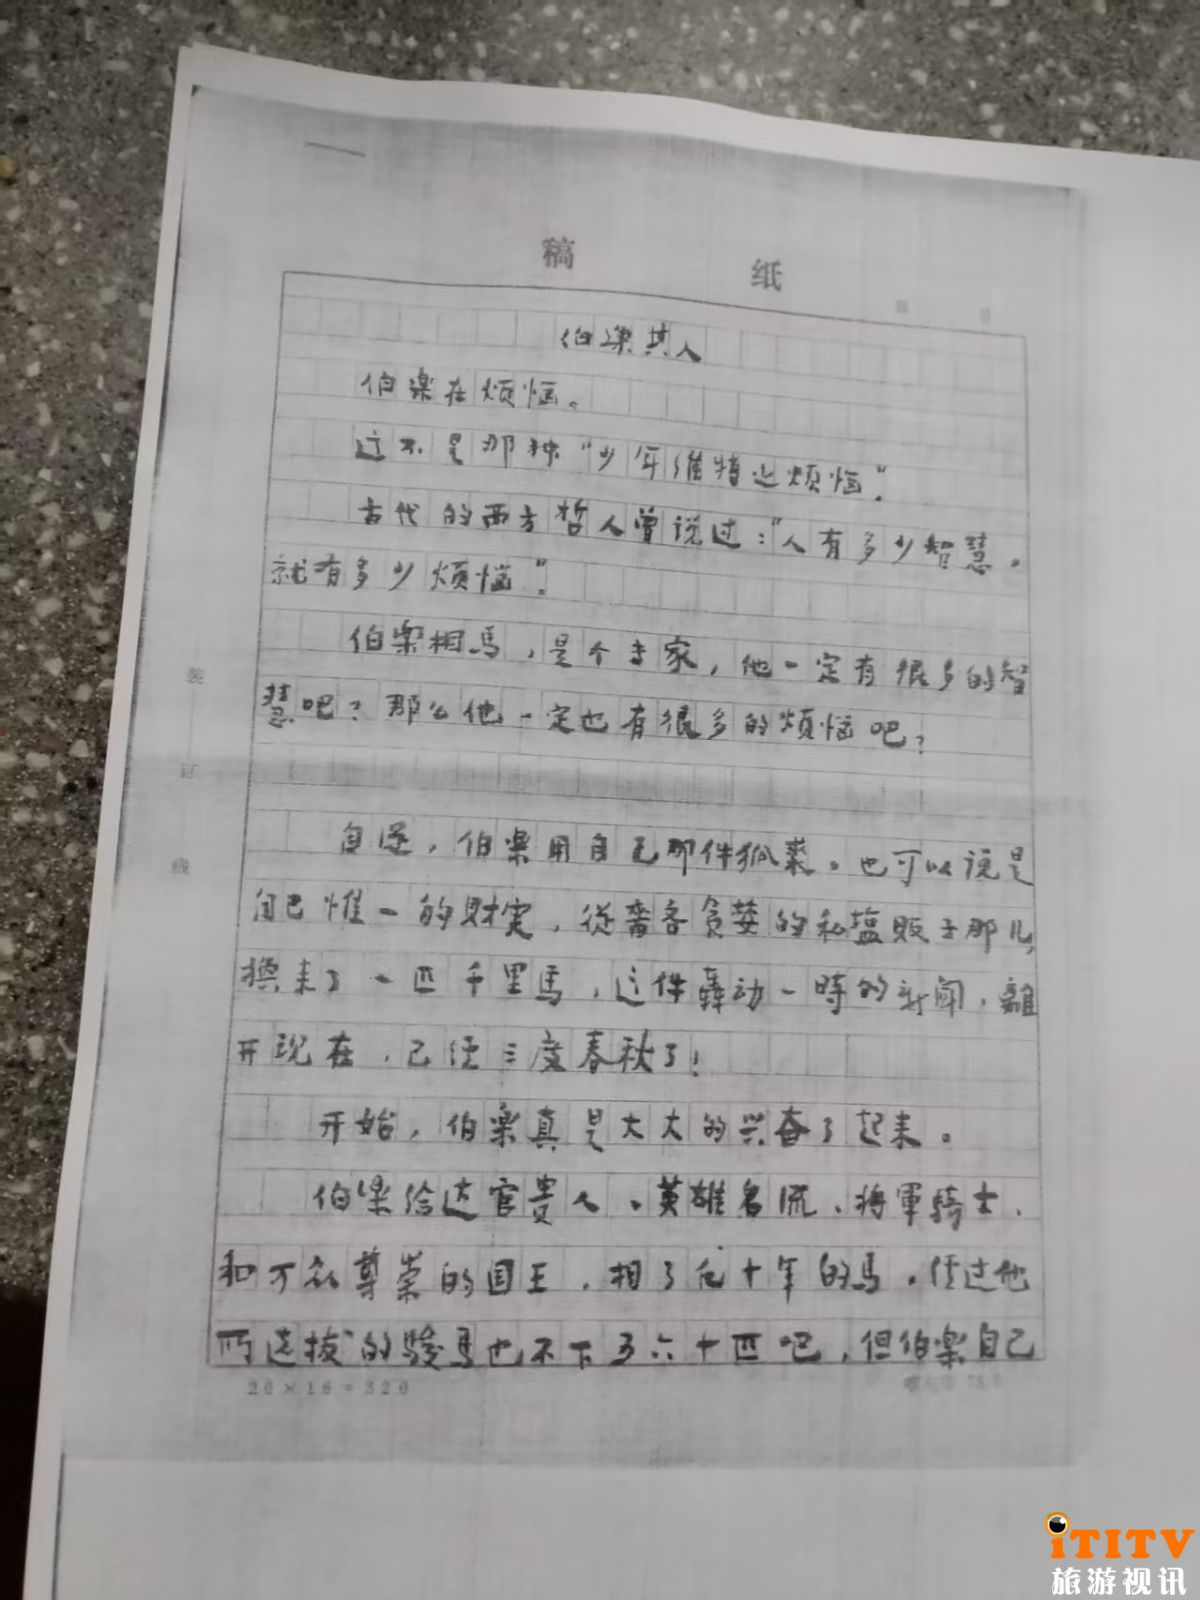 稿 纸
伯樂其人
伯樂在烦恼。
这不是那种“少年维特之烦恼”。
古代的西方哲人曾说过：“人有多少智慧。
就有多少烦恼”。
伯樂相馬，是个专家，他一定有很多的智
慧吧？那么他一定也有很多的烦恼吧？
自从，伯樂用自己那件狐裘。也可以说是
自己惟一的财宝，從啬吝贪婪的私塩贩子那儿，
換来了一匹千里馬，这件轰动一時的新闻，離
开现在，已经三度春秋了！
开始，伯樂真是大大的兴奋了起来。
伯樂给达官贵人、英雄名流、将軍骑士、
和万众尊崇的国王，相了几十年的馬。经过他
所选拔的骏馬也不下于六十匹吧，但伯樂自己
装
订
线
20×16=320
iTITV
旅游视讯